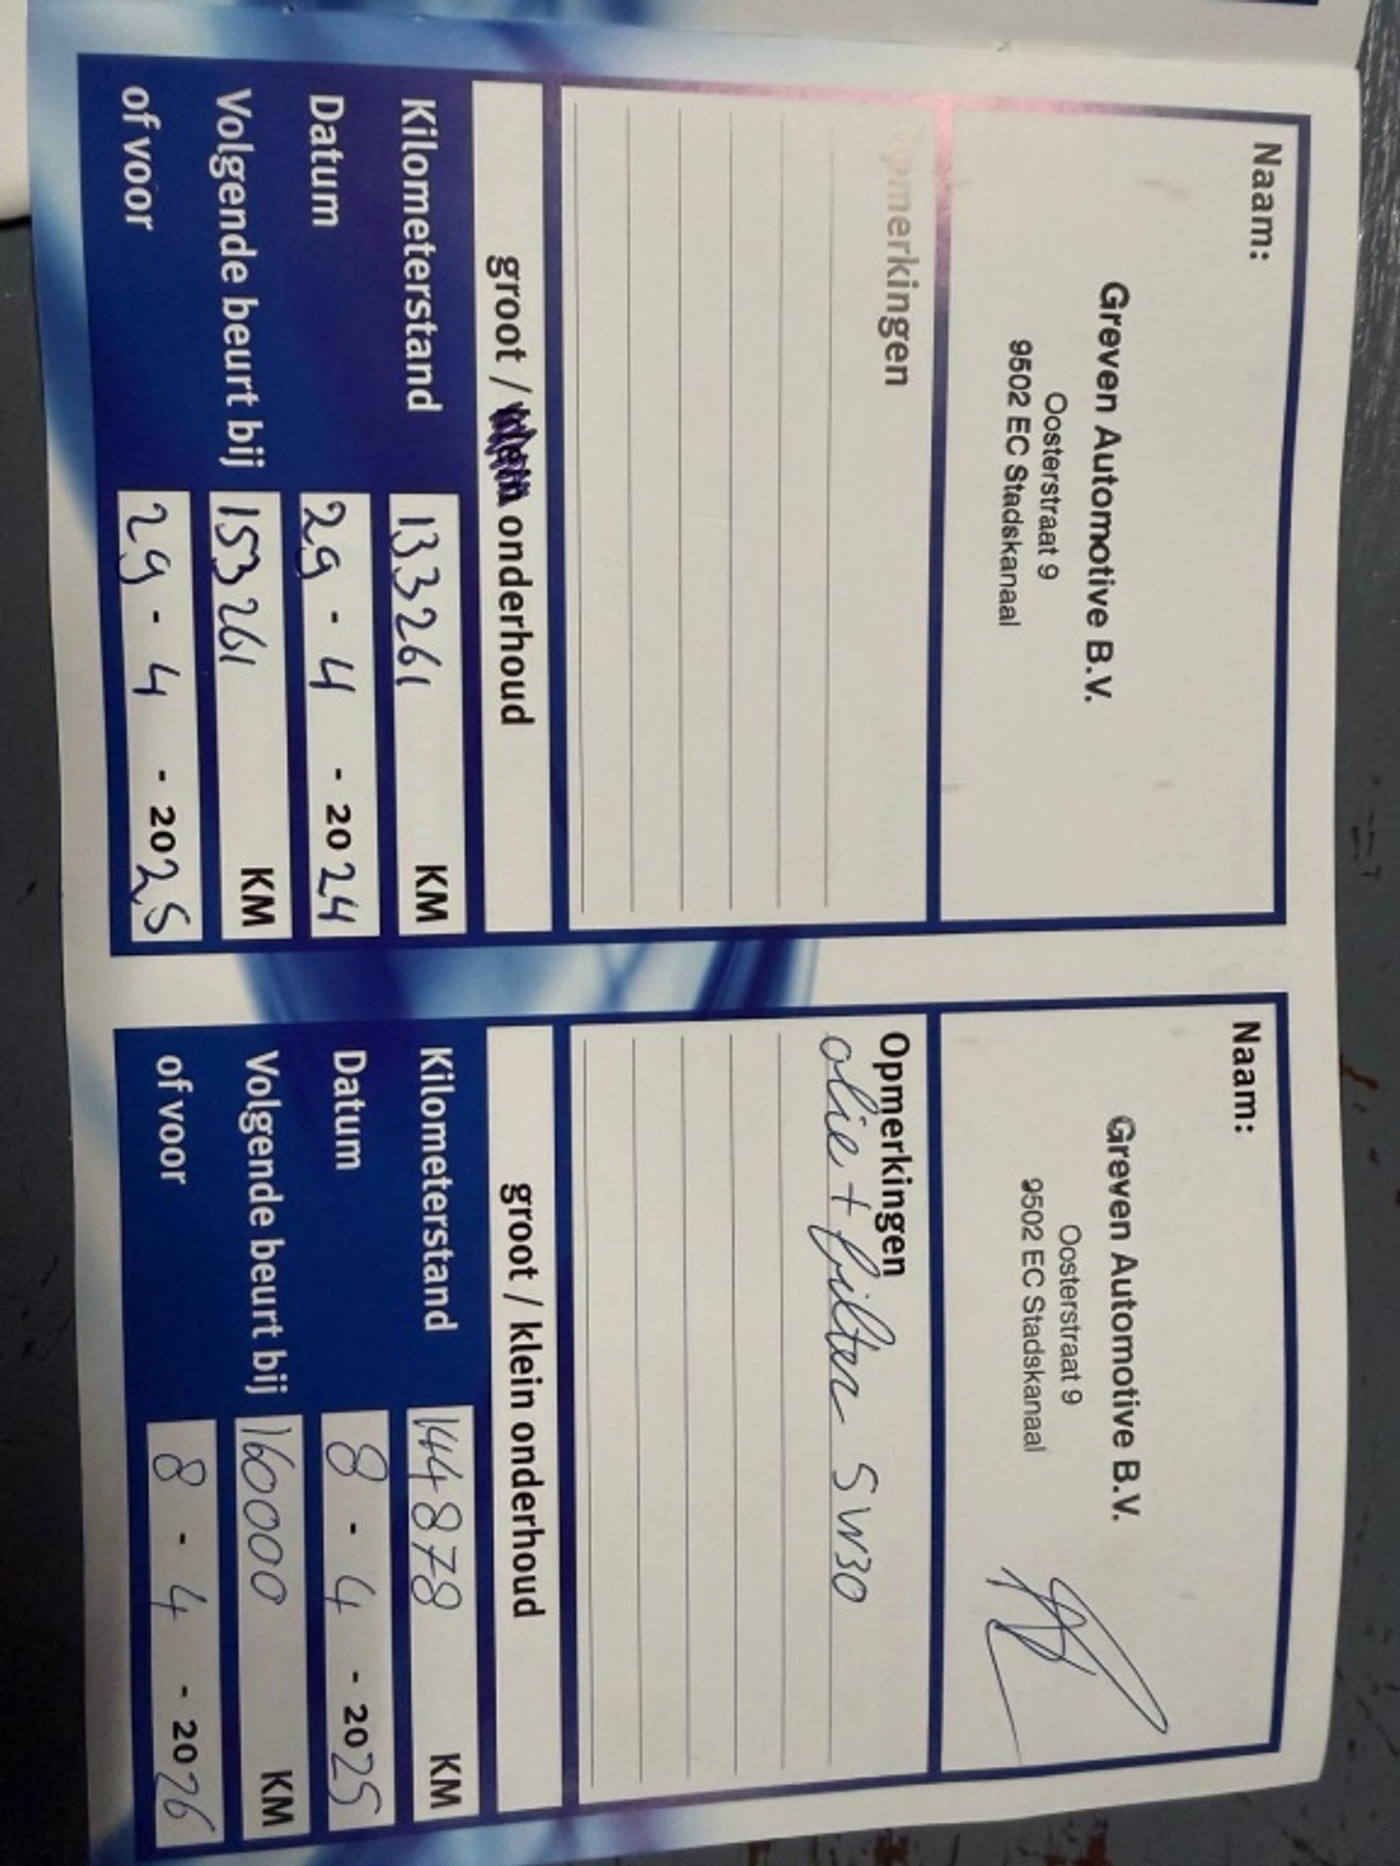 Naam:
Greven Automotive B.V.
Oosterstraat 9
9502 EC Stadskanaal
Opmerkingen
groot / klein onderhoud
Kilometerstand 133261 KM
Datum 29 - 4 - 2024
Volgende beurt bij 153261 KM
of voor 29 - 4 - 2025
Naam:
Greven Automotive B.V.
Oosterstraat 9
9502 EC Stadskanaal
Opmerkingen
olie + filter 5W30
groot / klein onderhoud
Kilometerstand 144878 KM
Datum 8 - 4 - 2025
Volgende beurt bij 160000 KM
of voor 8 - 4 - 2026